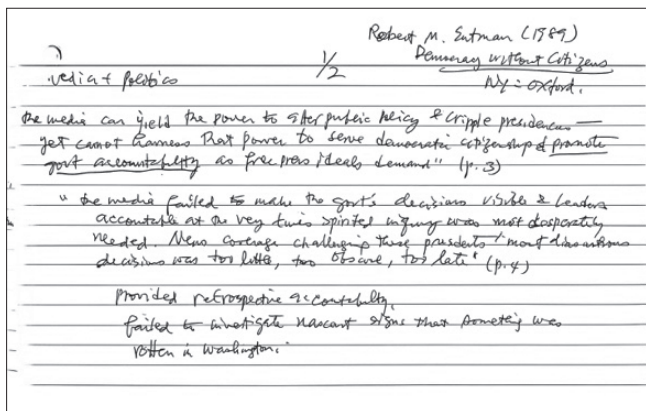 Robert M. Entman (1989)
Democracy without Citizens
NY: Oxford.
1/2
Media + Politics
the media can yield the power to alter public policy & cripple presidencies —
yet cannot harness that power to serve democratic citizenship & promote
govt accountability as free press ideals demand" (p. 3)
"the media failed to make the govt's decisions visible & leaders
accountable at the very times spirited inquiry was most desperately
needed. News coverage challenging these presidents' most disastrous
decisions was too little, too obscure, too late" (p. 4)
Provided retrospective accountability.
failed to investigate nascent signs that something was
rotten in Washington.